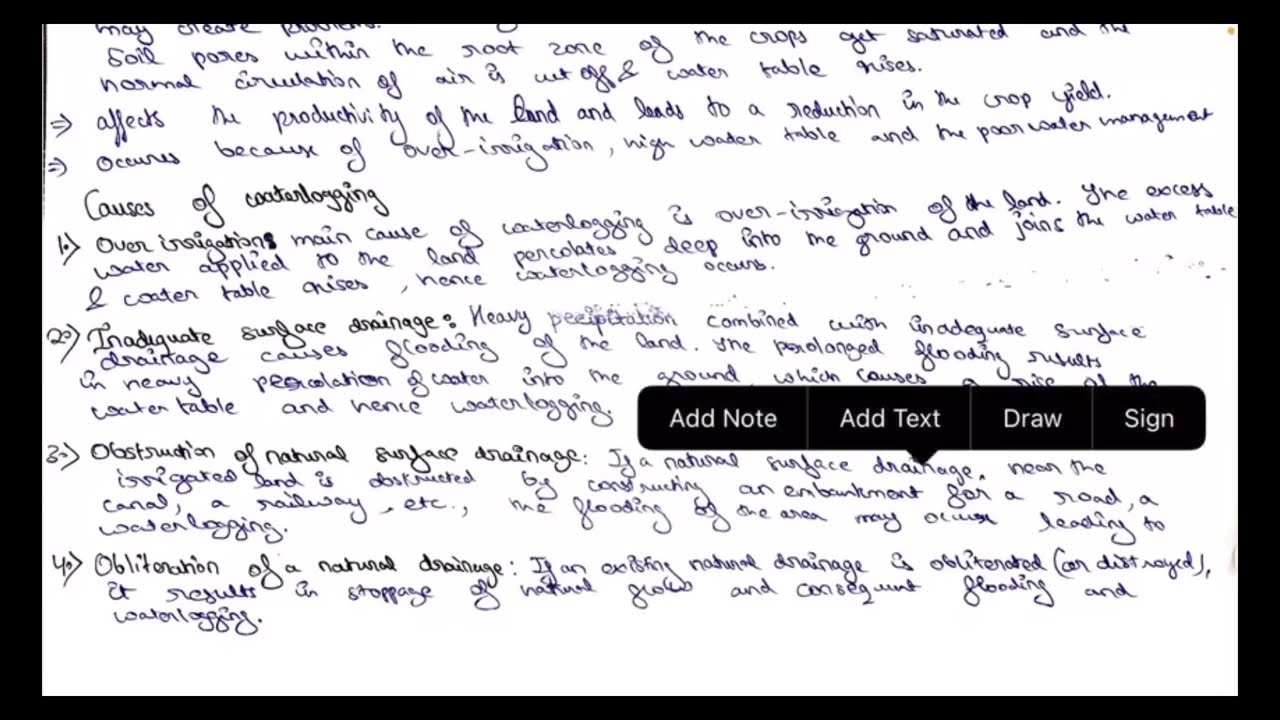 may create problems.
Soil pores within the root zone of the crops get saturated and the
normal circulation of air is cut off & water table rises.
⇒ affects the productivity of the land and leads to a reduction in the crop yield.
⇒ Occures because of over-irrigation, high water table and the poor water management
Causes of waterlogging
1.) Over irrigation: main cause of waterlogging is over-irrigation of the land. The excess
water applied to the land percolates deep into the ground and joins the water table
& water table rises, hence waterlogging occurs.
2.) Inadequate surface drainage: Heavy pecipitation combined with inadequate surface
drainage causes flooding of the land. The prolonged flooding results
in heavy percolation of water into the ground, which causes a rise of the
water table and hence waterlogging.
Add Note Add Text Draw Sign
3.) Obstruction of natural surface drainage: If a natural surface drainage, near the
irrigated land is obstructed by constructing an embankment for a road, a
canal, a railway, etc., the flooding of the area may occur leading to
waterlogging.
4.) Obliteration of a natural drainage: If an existing natural drainage is obliterated (or distroyed),
it results in stoppage of natural flow and consequent flooding and
waterlogging.